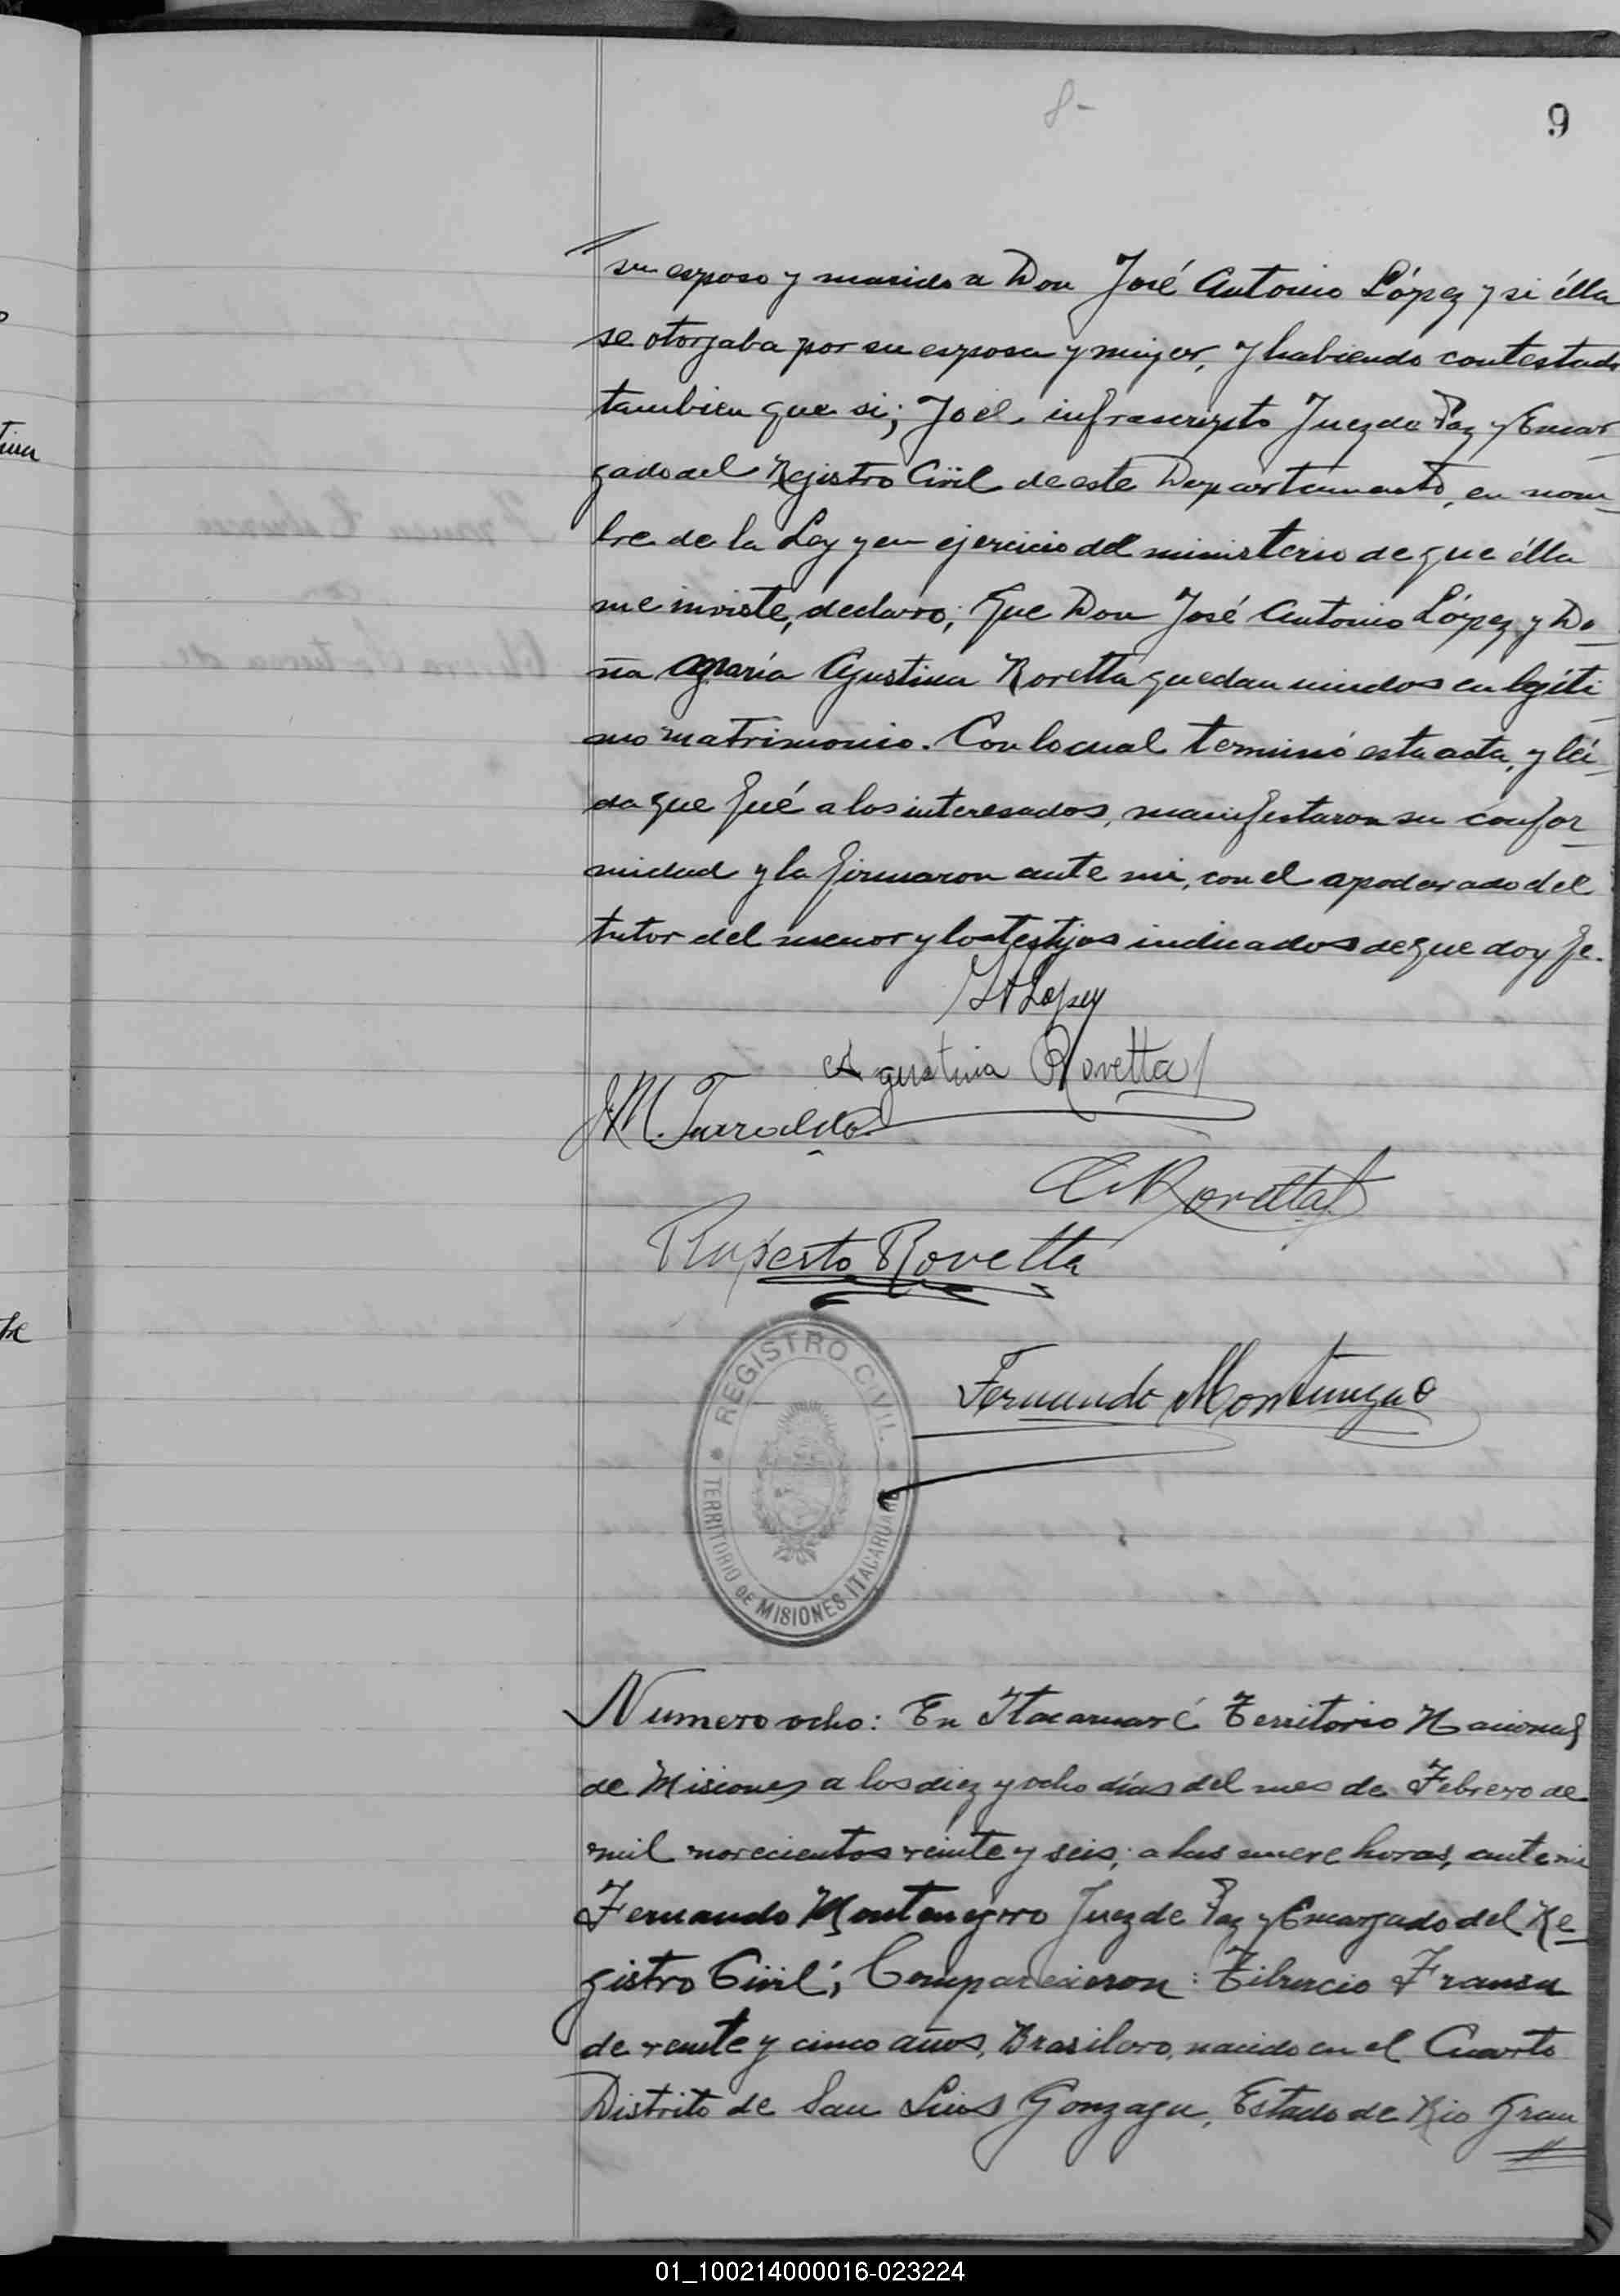 8-
9
su esposo y marido a Don José Antonio López y si élla
se otorgaba por su esposa y mujer, y habiendo contestado
tambien que si; Yo el infrascripto Juez de Paz y Encar
gado del Registro Civil de este Departamento, en nom_
bre de la Ley y en ejercicio del ministerio de que élla
me inviste, declaro; Que Don José Antonio López y Do_
ña María Agustina Rovetta quedan unidos en legíti_
mo matrimonio. Con lo cual terminó esta acta, y léi_
da que fué a los interesados, manifestaron su confor_
midad y la firmaron ante mi, con el apoderado del
tutor del menor y los testijos indicados de que doy fe.
Lopez
Agustina Rovetta
J.M.
Rovetta
Ruperto Rovetta
REGISTRO CIVIL
TERRITORIO DE MISIONES. ITACARUARE
Fernando Montenegro
Numero ocho: En Itacaruaré Territorio Nacional
de Misiones a los diez y ocho días del mes de Febrero de
mil novecientos veinte y seis; a las nueve horas, ante mi
Fernando Montenegro Juez de Paz y Encargado del Re
gistro Civil; Comparecieron: Tiburcio Fransa
de veinte y cinco años, Brasilero, nacido en el Cuarto
Distrito de San Luis Gonzaga, Estado de Rio Gran
01_100214000016-023224